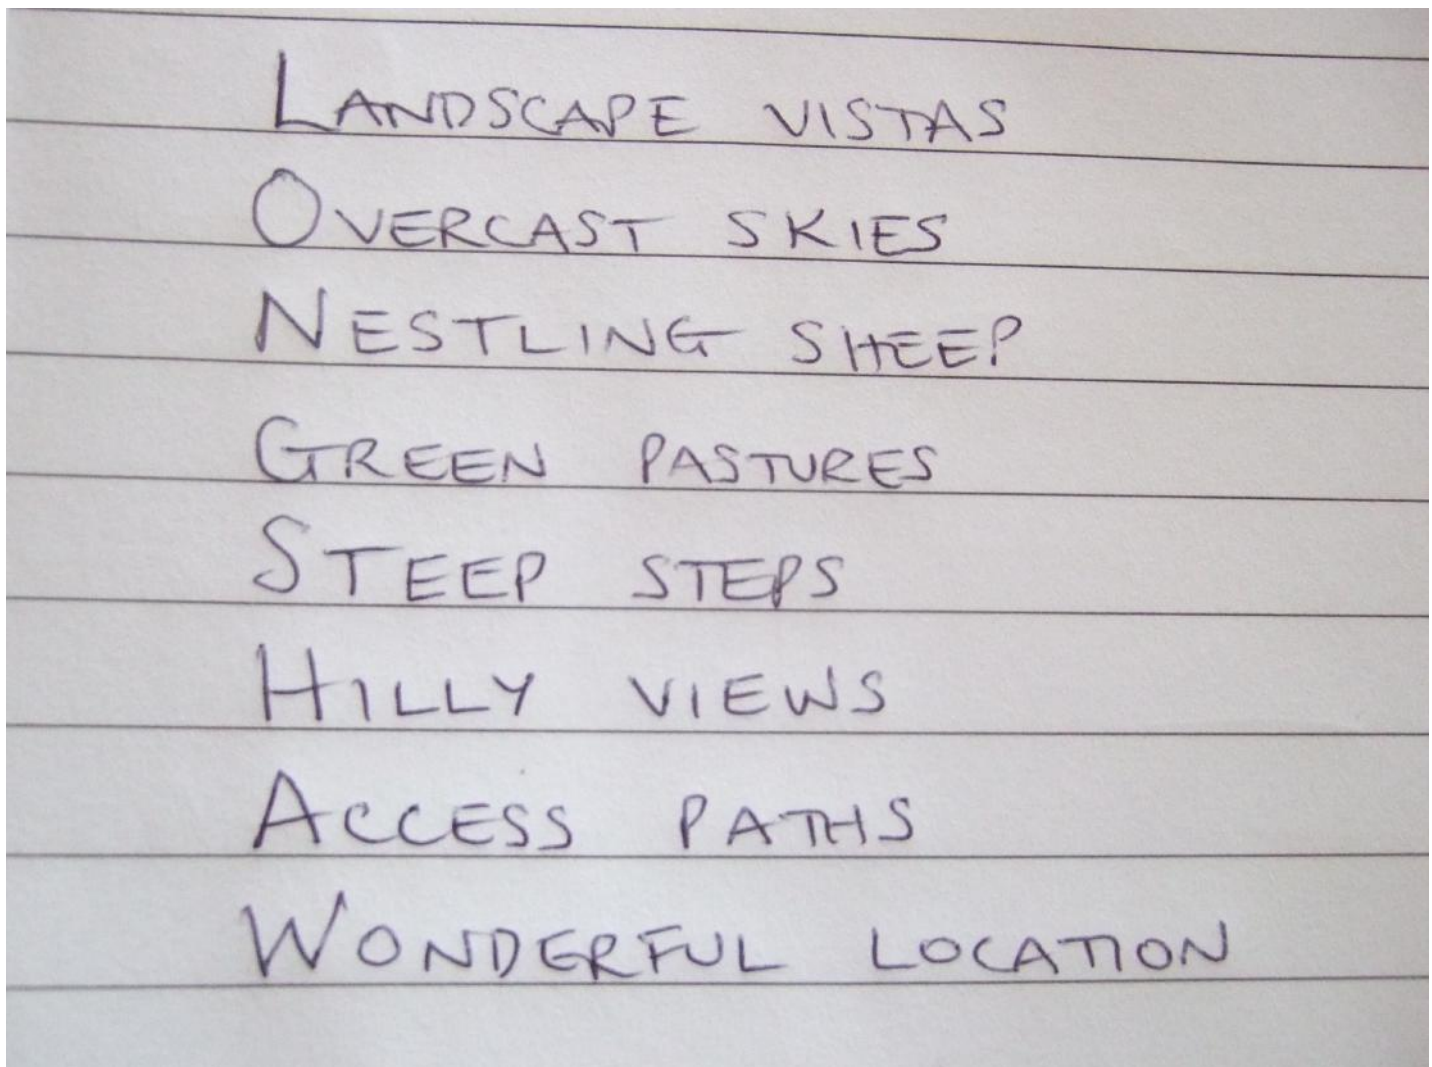 LANDSCAPE VISTAS
OVERCAST SKIES
NESTLING SHEEP
GREEN PASTURES
STEEP STEPS
HILLY VIEWS
ACCESS PATHS
WONDERFUL LOCATION